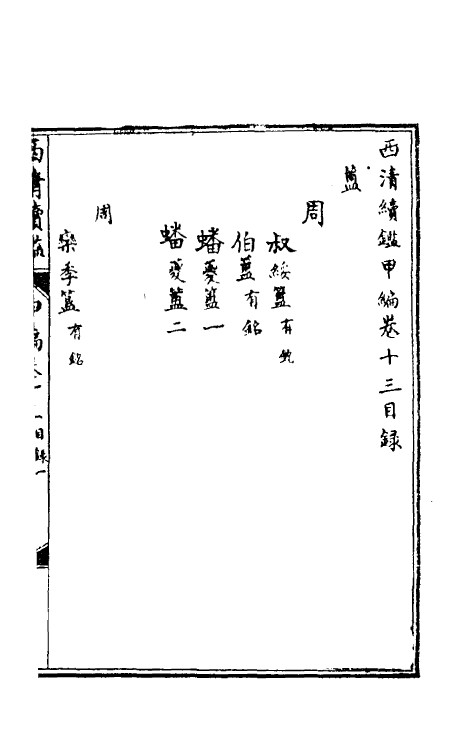 西清續鑑甲編卷十三目録
簠
周
叔綏簠有銘
伯簠有銘
蟠夔簠一
蟠夔簠二
周
欒季簠有銘
西清續鑑 甲編卷十三目録一